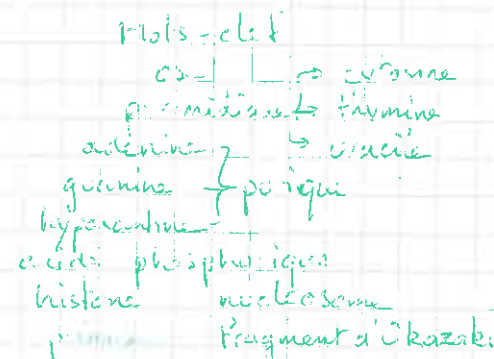 Mots-clef
→ cytosine
pyrimidique → thymine
→ uracile
adénine
guanine } purique
hypoxanthine
acide phosphorique
histone nucléosome
Fragment d'Okazaki